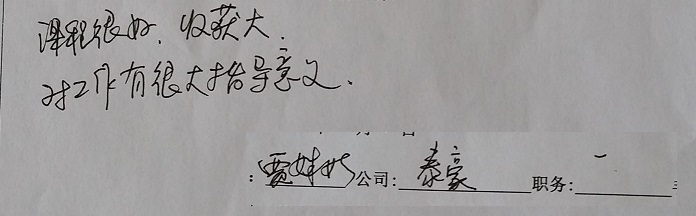 课程很好、收获大、
对工作有很大指导意义、
：贾 公司：泰豪 职务：一